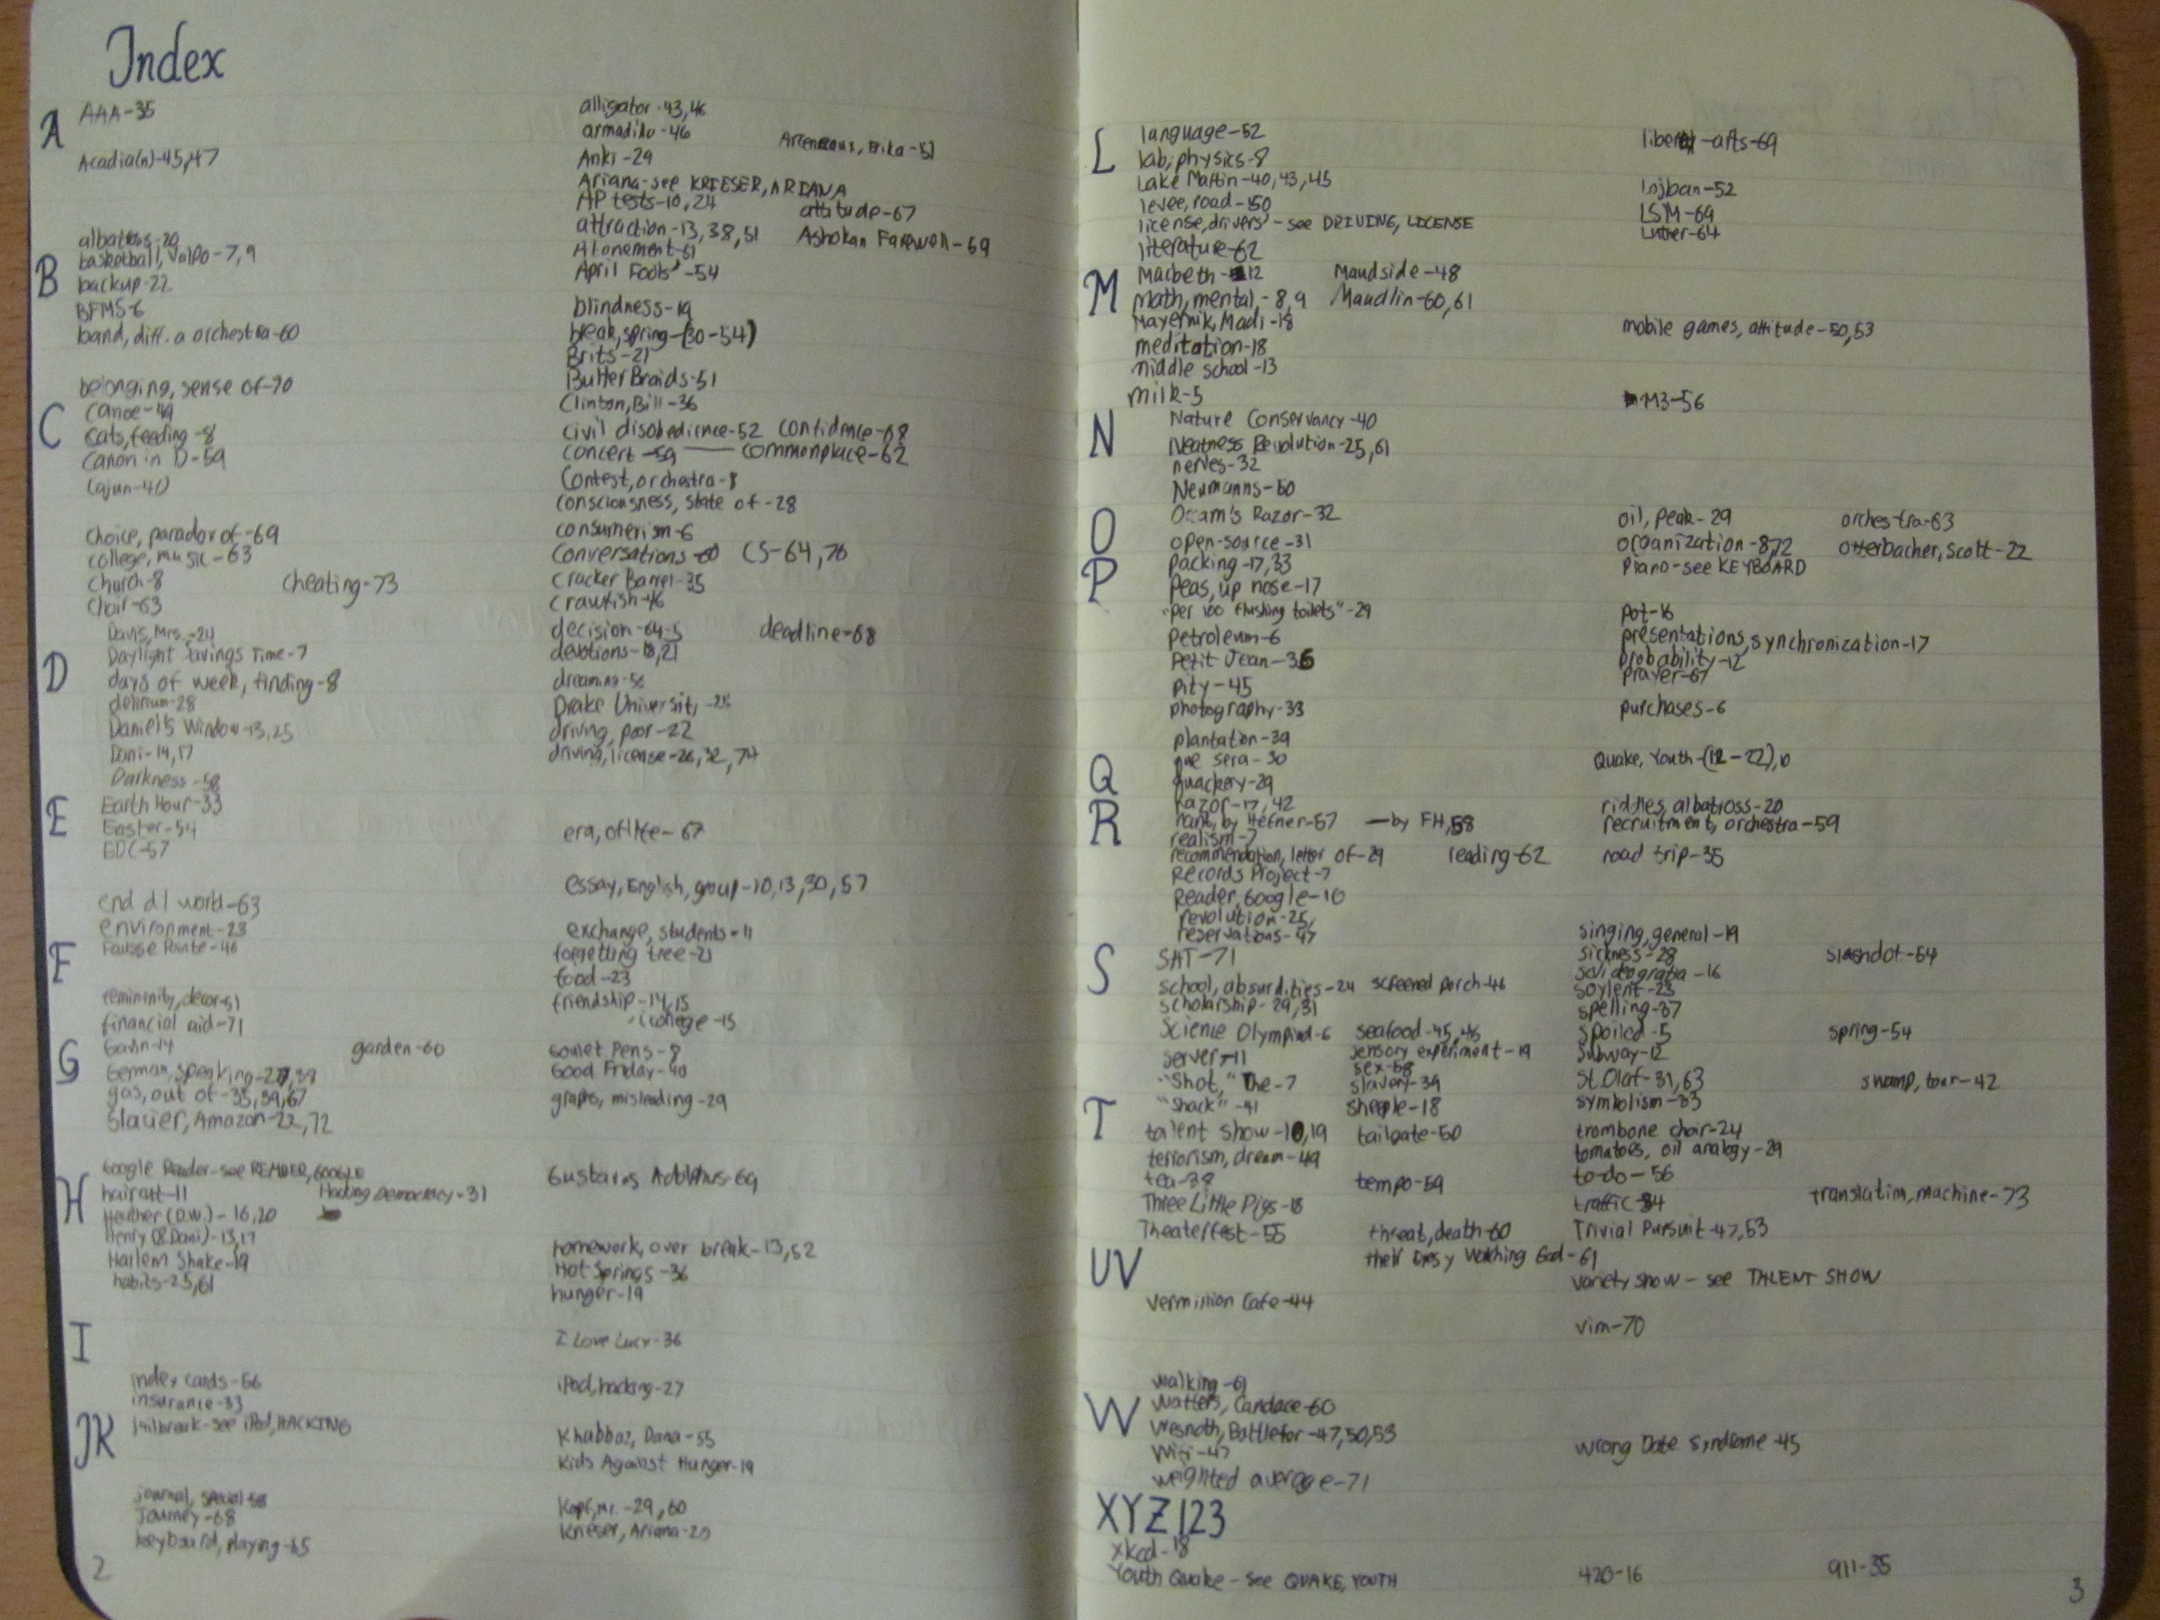 Index
A
AAA-35
Acadia(n)-45,47
albatross-20
alligator-43,46
armadillo-46
Arceneaux, Erika-51
Anki-29
Ariana-see KRIESER, ARIANA
AP tests-10,24
attitude-67
attraction-13,38,51
Ashokan Farewell-69
Atonement-61
April Fools'-54
B
basketball, Valpo-7,9
backup-22
BFMS-6
band, diff. a orchestra-60
belonging, sense of-70
blindness-19
break, spring-(30-54)
Brits-21
Butter Braids-51
C
canoe-49
cats, feeding-8
Canon in D-59
Cajun-40
choice, paradox of-69
college, music-63
church-8
cheating-73
choir-63
Clinton, Bill-36
civil disobedience-52
confidence-68
concert-59
commonplace-62
contest, orchestra-8
consciousness, state of-28
consumerism-6
conversations-60
CS-64,70
Cracker Barrel-35
crawfish-46
D
Davis, Mrs.-24
Daylight Savings Time-7
days of week, finding-8
delirium-28
Daniel's Window-13,25
Dani-14,17
Darkness-58
decision-64-5
deadline-68
devotions-18,21
dreaming-56
Drake University-25
driving, poor-22
driving, license-26,32,74
E
Earth Hour-33
Easter-54
EDC-57
end d/ world-63
environment-23
era, of life-67
essay, English, group-10,13,30,57
exchange, students-11
F
Fausse Pointe-46
femininity, decor-51
financial aid-71
forgetting tree-21
food-23
friendship-14,15
-, college-15
G
Gavin-14
garden-60
German, speaking-27,39
gas, out of-35,39,67
Glacier, Amazon-22,72
Google Reader-see READER, GOOGLE
Gomet Pens-8
Good Friday-40
graphs, misleading-29
Gustavus Adolphus-69
H
haircut-11
Hacking Democracy-31
Heather (D.W.)-16,20
Henry (& Dani)-13,17
Harlem Shake-19
habits-25,61
homework, over break-13,52
Hot Springs-36
hunger-19
I
I Love Lucy-36
index cards-56
insurance-33
iPod, hacking-27
JK
jailbreak-see iPod, HACKING
Khabbaz, Dana-55
Kids Against Hunger-19
journal, special-58
Journey-68
keyboard, playing-65
Kopf, Mr.-29,60
Krieser, Ariana-20
2
L
language-52
lab, physics-8
Lake Martin-40,43,45
levee, road-50
license, drivers'-see DRIVING, LICENSE
literature-62
liberal-arts-69
lojban-52
LSM-69
Luther-64
M
Macbeth-12
Maudside-48
math, mental,-8,9
Maudlin-60,61
Mayernik, Madi-18
meditation-18
middle school-13
milk-5
mobile games, attitude-50,53
M3-56
N
Nature Conservancy-40
Neatness Revolution-25,61
nerves-32
Neumanns-50
O
Occam's Razor-32
open-source-31
oil, peak-29
orchestra-63
organization-8,72
Otterbacher, Scott-22
P
packing-17,33
Peas, up nose-17
"per 100 flushing toilets"-29
petroleum-6
Petit Jean-36
pity-45
photography-33
plantation-39
Piano-see KEYBOARD
pot-16
presentations, synchronization-17
probability-12
prayer-67
purchases-6
Q
que sera-30
quackery-29
Quake, Youth-(12-22),10
R
Razor-17,42
rank, by Hefner-57
-by FH,58
realism-7
recommendation, letter of-29
reading-62
Records Project-7
Reader, Google-10
revolution-25,
reservations-47
riddles, albatross-20
recruitment, orchestra-59
road trip-35
S
SAT-71
school, absurdities-24
screened porch-46
scholarship-29,31
Science Olympiad-6
seafood-45,46
server-11
sensory experiment-19
sex-68
"Shot," The-7
slavery-39
"Shack"-41
sheeple-18
singing, general-19
sickness-28
slashdot-64
solideogratia-16
soylent-23
spelling-37
spoiled-5
spring-54
subway-12
St. Olaf-31,63
swamp, tour-42
symbolism-33
T
talent show-10,19
tailgate-50
terrorism, dream-49
tea-38
tempo-59
Three Little Pigs-18
Theaterfest-55
threat, death-60
Their Eyes y Watching God-61
trombone choir-24
tomatoes, oil analogy-29
to-do-56
traffic-34
translation, machine-73
Trivial Pursuit-47,53
UV
vermilion Cafe-44
variety show-see TALENT SHOW
vim-70
W
walking-61
Watters, Candace-60
Wesnoth, Battle for-47,50,53
WiFi-47
weighted average-71
Wrong Date Syndrome-45
XYZ123
xkcd-18
Youth Quake-see QUAKE, YOUTH
420-16
911-35
3